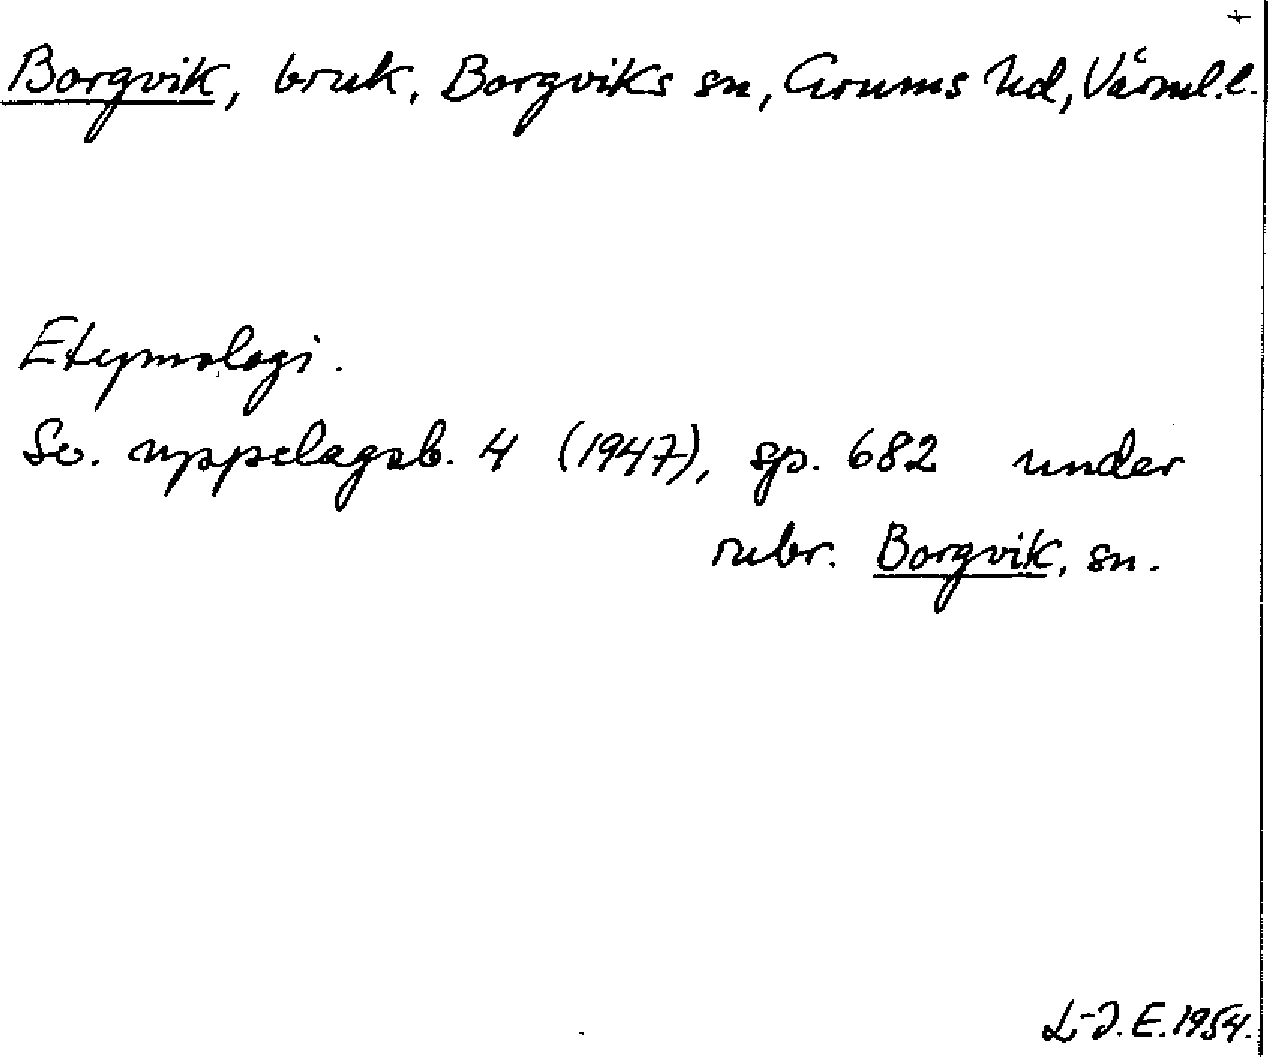 Borgvik, bruk, Borgviks sn, Grums hd, Värml.l.
Etymologi.
Sv. uppslagsb. 4 (1947), sp. 682 under
rubr. Borgvik, sn.
L-J. E. 1954.